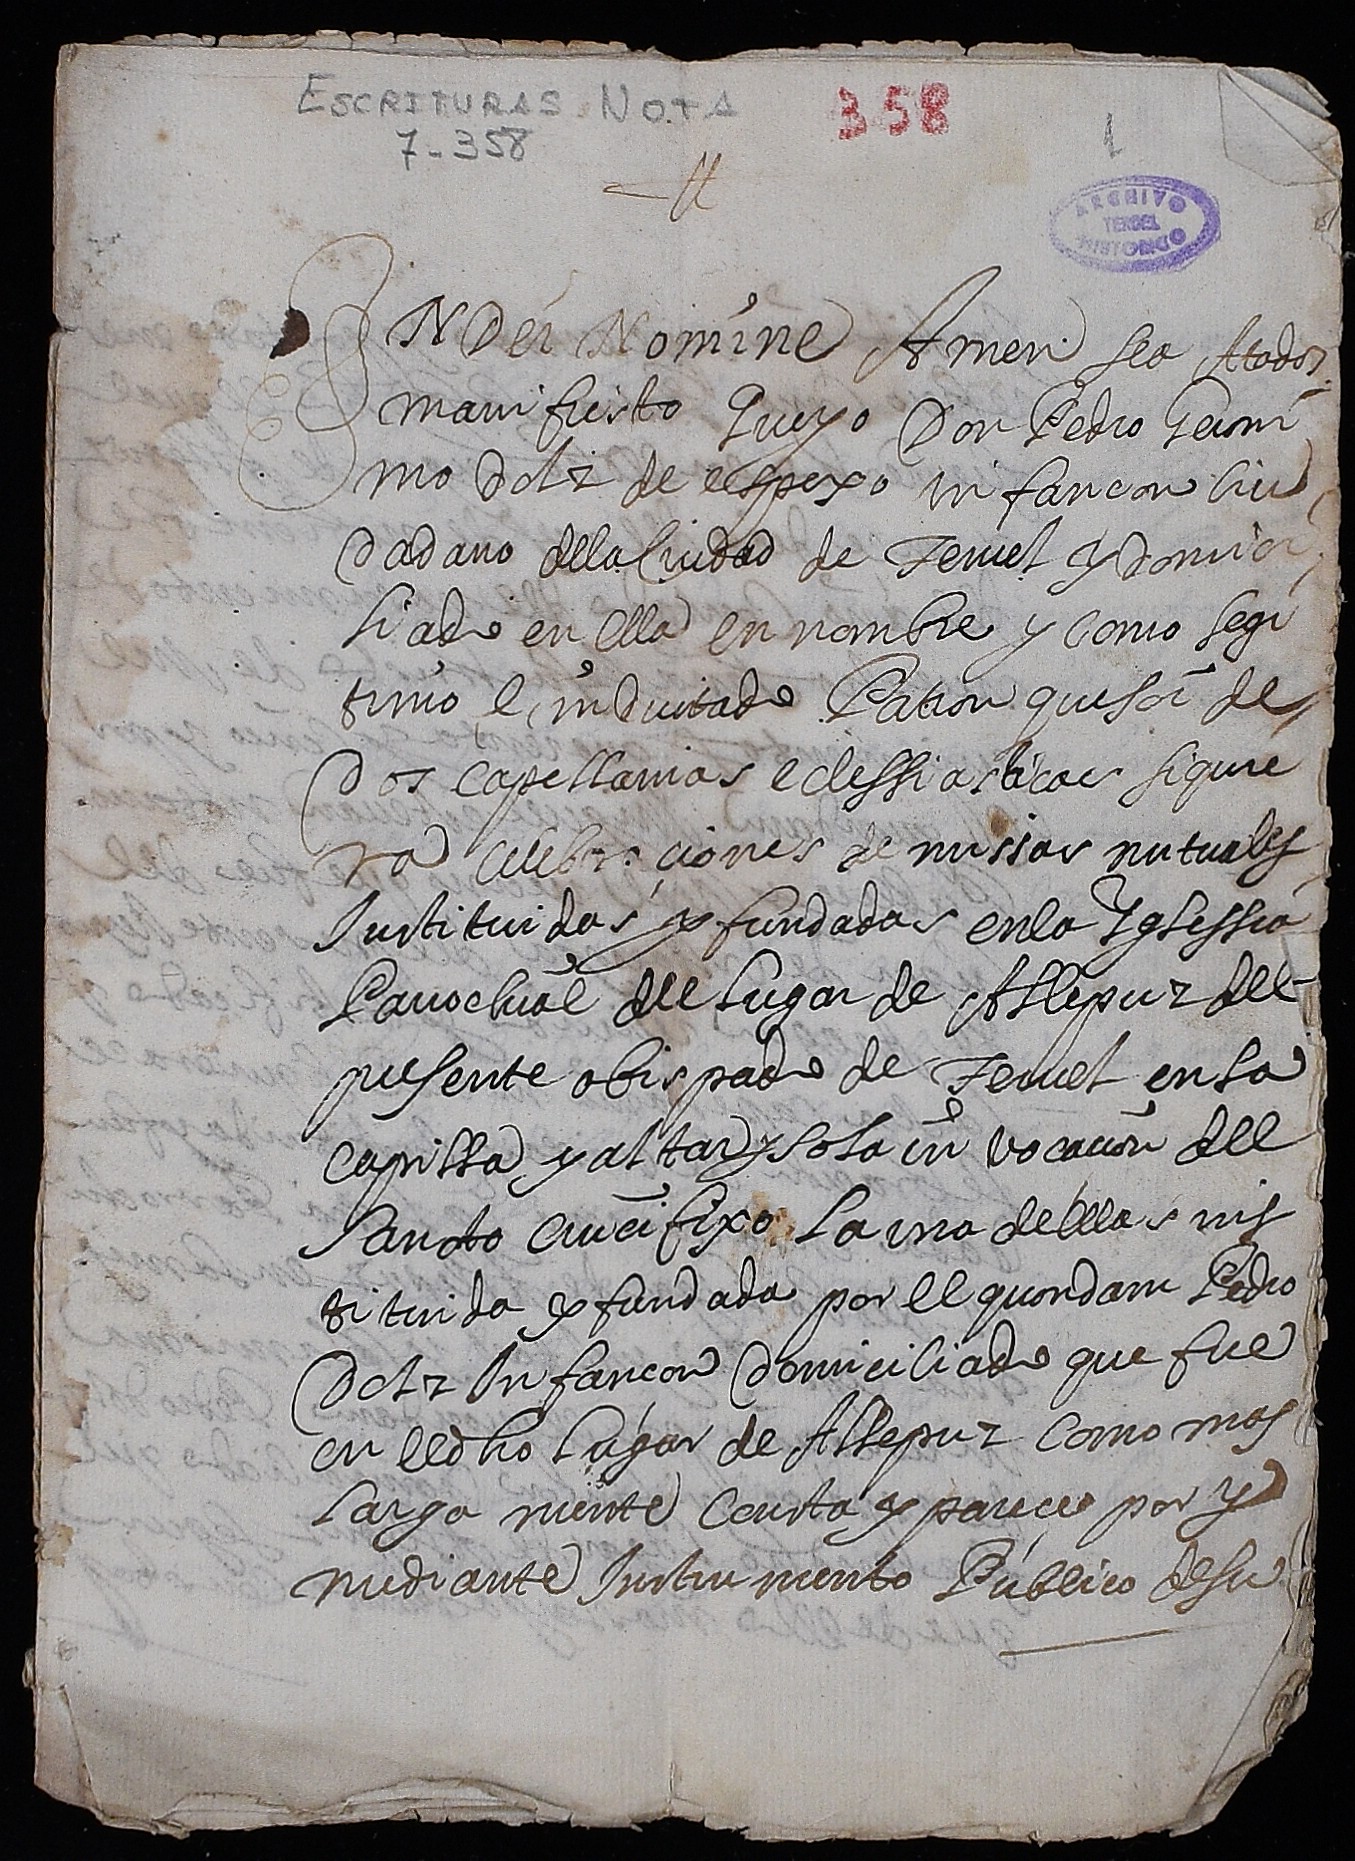 ESCRITURAS NOTA
7-358
358
1
ARCHIVO
TERUEL
HISTORICO
IN Dei Nomine Amen sea Atodos
manifiesto Que yo Don Pedro Geroni
mo Dolz de espexo infancon Ciu
dadano della Ciudad de Teruel y domici
liado en ella en nombre y como legi
timo e induvitado Patron que soi de
Dos capellanias eclessiasticas siquie
ra celebraciones de missas mutuales
Instituidas y fundadas en la Iglessia
Parrochial del lugar de Allepuz del
presente obispado de Teruel en la
capilla y altar y sola invocacion del
Sancto Crucifixo la una dellas ins
tituida y fundada por el quondam Pedro
Dolz Infancon domiciliado que fue
en el dho lugar de Allepuz como mas
largamente consta y parece por y
mediante Instrumento Publico de su